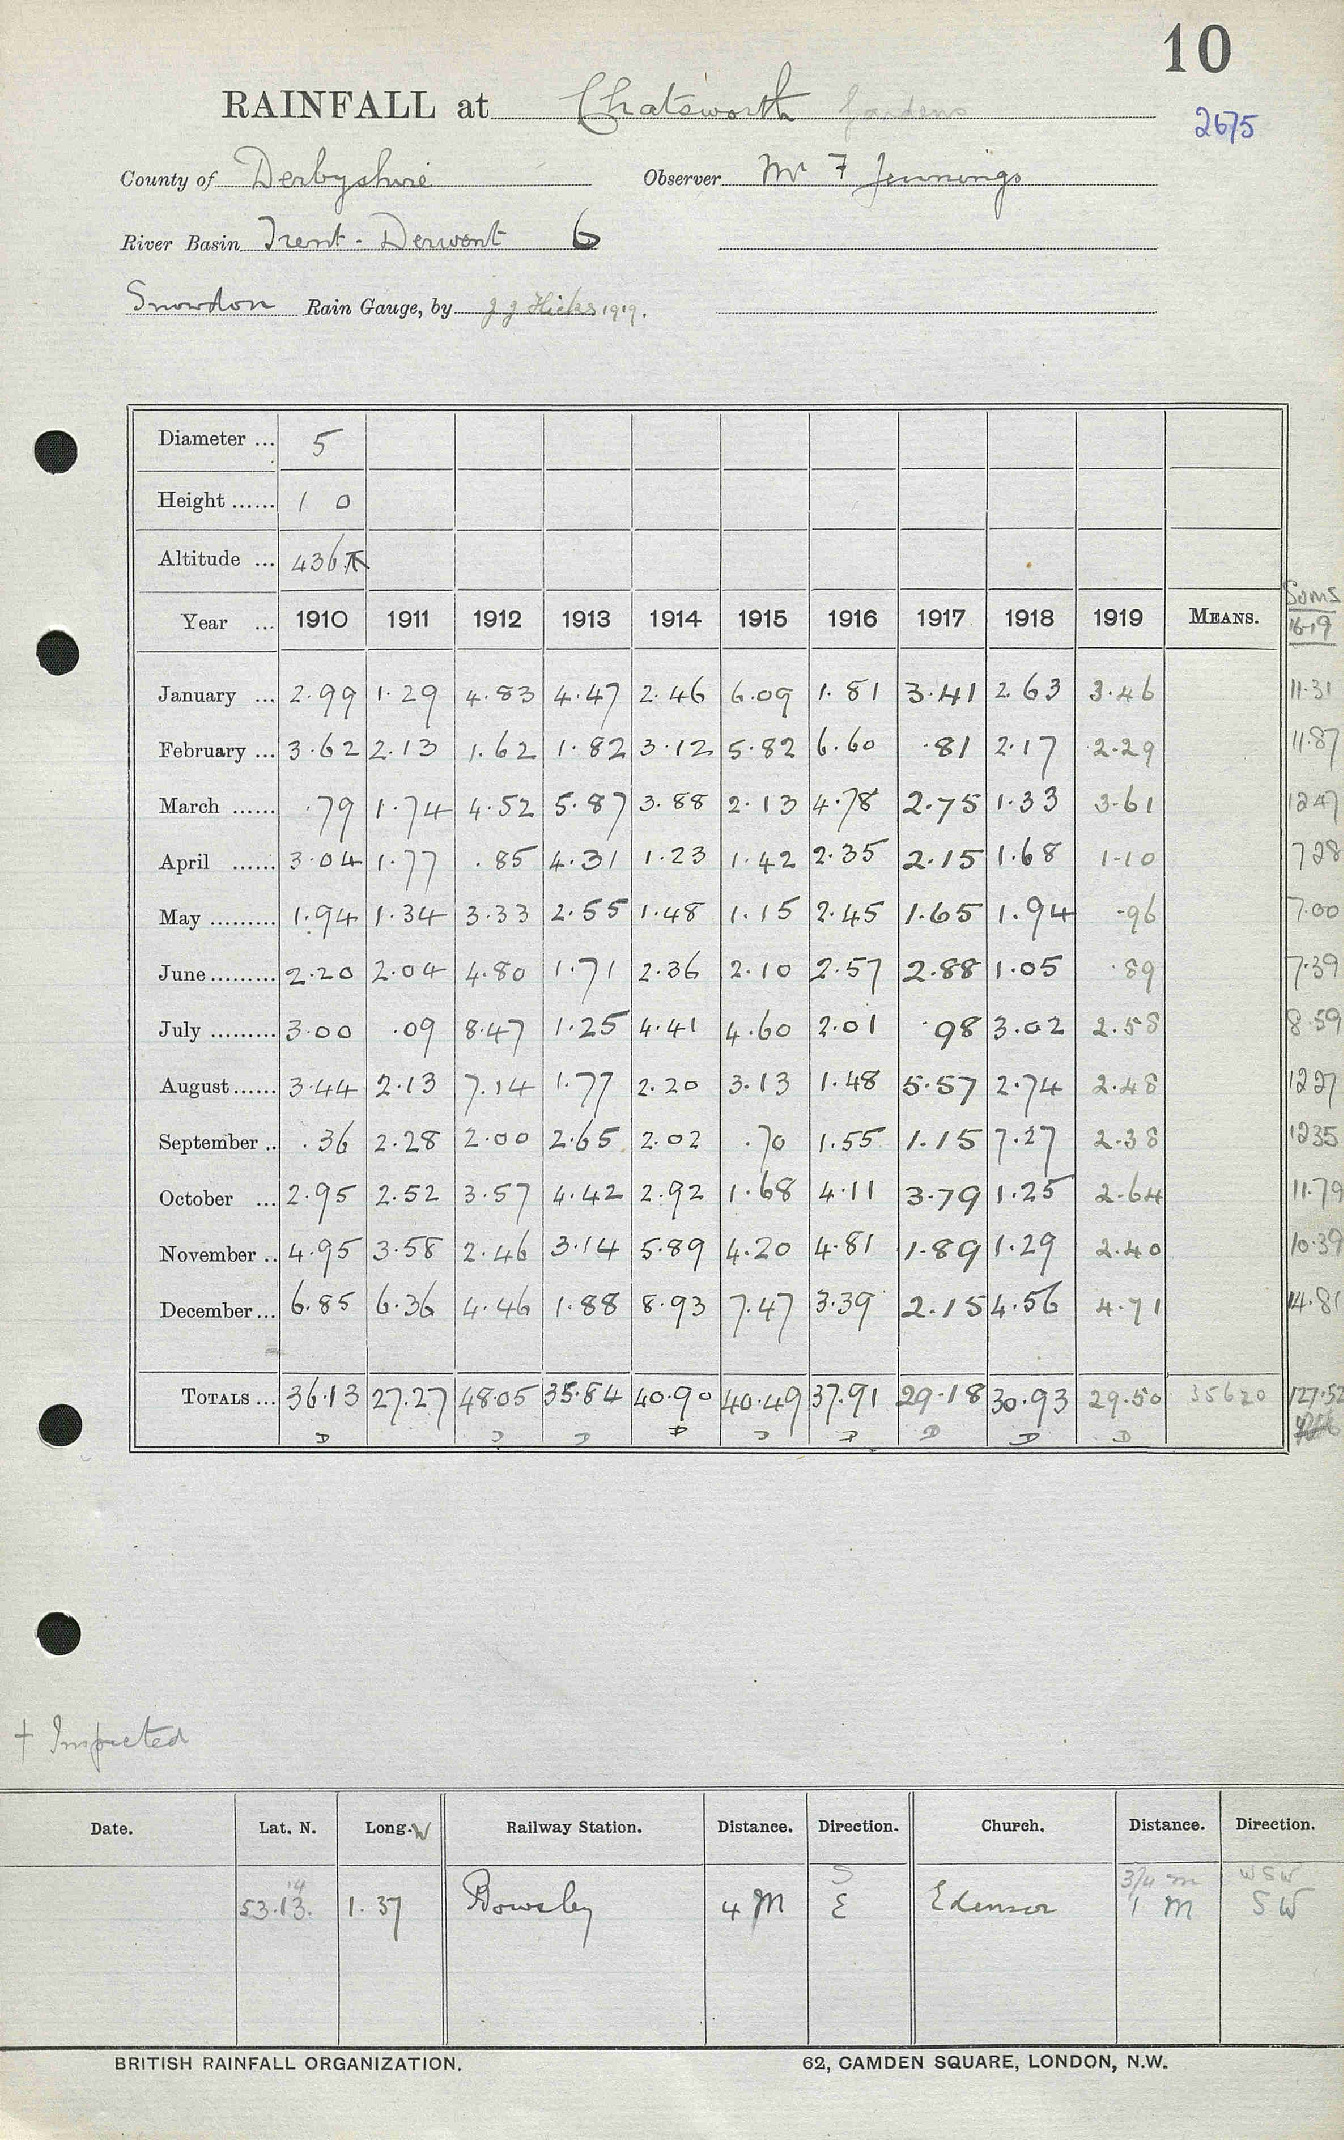 10
RAINFALL at Chatsworth Gardens
2675
County of Derbyshire Observer Mr F Jennings
River Basin Trent - Derwent 6
Snowdon Rain Gauge, by J J Hicks 1919.
Diameter ... 5
Height ...... 1 0
Altitude ... 436
Sums
Year ... 1910 1911 1912 1913 1914 1915 1916 1917 1918 1919 MEANS. 16-19
January ... 2.99 1.29 4.83 4.47 2.46 6.09 1.81 3.41 2.63 3.46 11.31
February ... 3.62 2.13 1.62 1.82 3.12 5.82 6.60 .81 2.17 2.29 11.87
March ...... .79 1.74 4.52 5.87 3.88 2.13 4.78 2.75 1.33 3.61 12.47
April ...... 3.04 1.77 .85 4.31 1.23 1.42 2.35 2.15 1.68 1.10 7.28
May ......... 1.94 1.34 3.33 2.55 1.48 1.15 2.45 1.65 1.94 .96 7.00
June ......... 2.20 2.04 4.80 1.71 2.36 2.10 2.57 2.88 1.05 .89 7.39
July ......... 3.00 .09 8.47 1.25 4.41 4.60 2.01 .98 3.02 2.58 8.59
August ...... 3.44 2.13 7.14 1.77 2.20 3.13 1.48 5.57 2.74 2.48 12.27
September .. .36 2.28 2.00 2.65 2.02 .70 1.55 1.15 7.27 2.38 12.35
October ... 2.95 2.52 3.57 4.42 2.92 1.68 4.11 3.79 1.25 2.64 11.79
November .. 4.95 3.58 2.46 3.14 5.89 4.20 4.81 1.89 1.29 2.40 10.39
December ... 6.85 6.36 4.46 1.88 8.93 7.47 3.39 2.15 4.56 4.71 14.81
TOTALS ... 36.13 27.27 48.05 35.84 40.90 40.49 37.91 29.18 30.93 29.50 35620 127.52
D D D D D D D D D
+ Inspected
Date. Lat. N. Long. W Railway Station. Distance. Direction. Church. Distance. Direction.
14 S 3/4 m WSW
53.13. 1.37 Rowsley 4 M E Edensor 1 M SW
BRITISH RAINFALL ORGANIZATION. 62, CAMDEN SQUARE, LONDON, N.W.